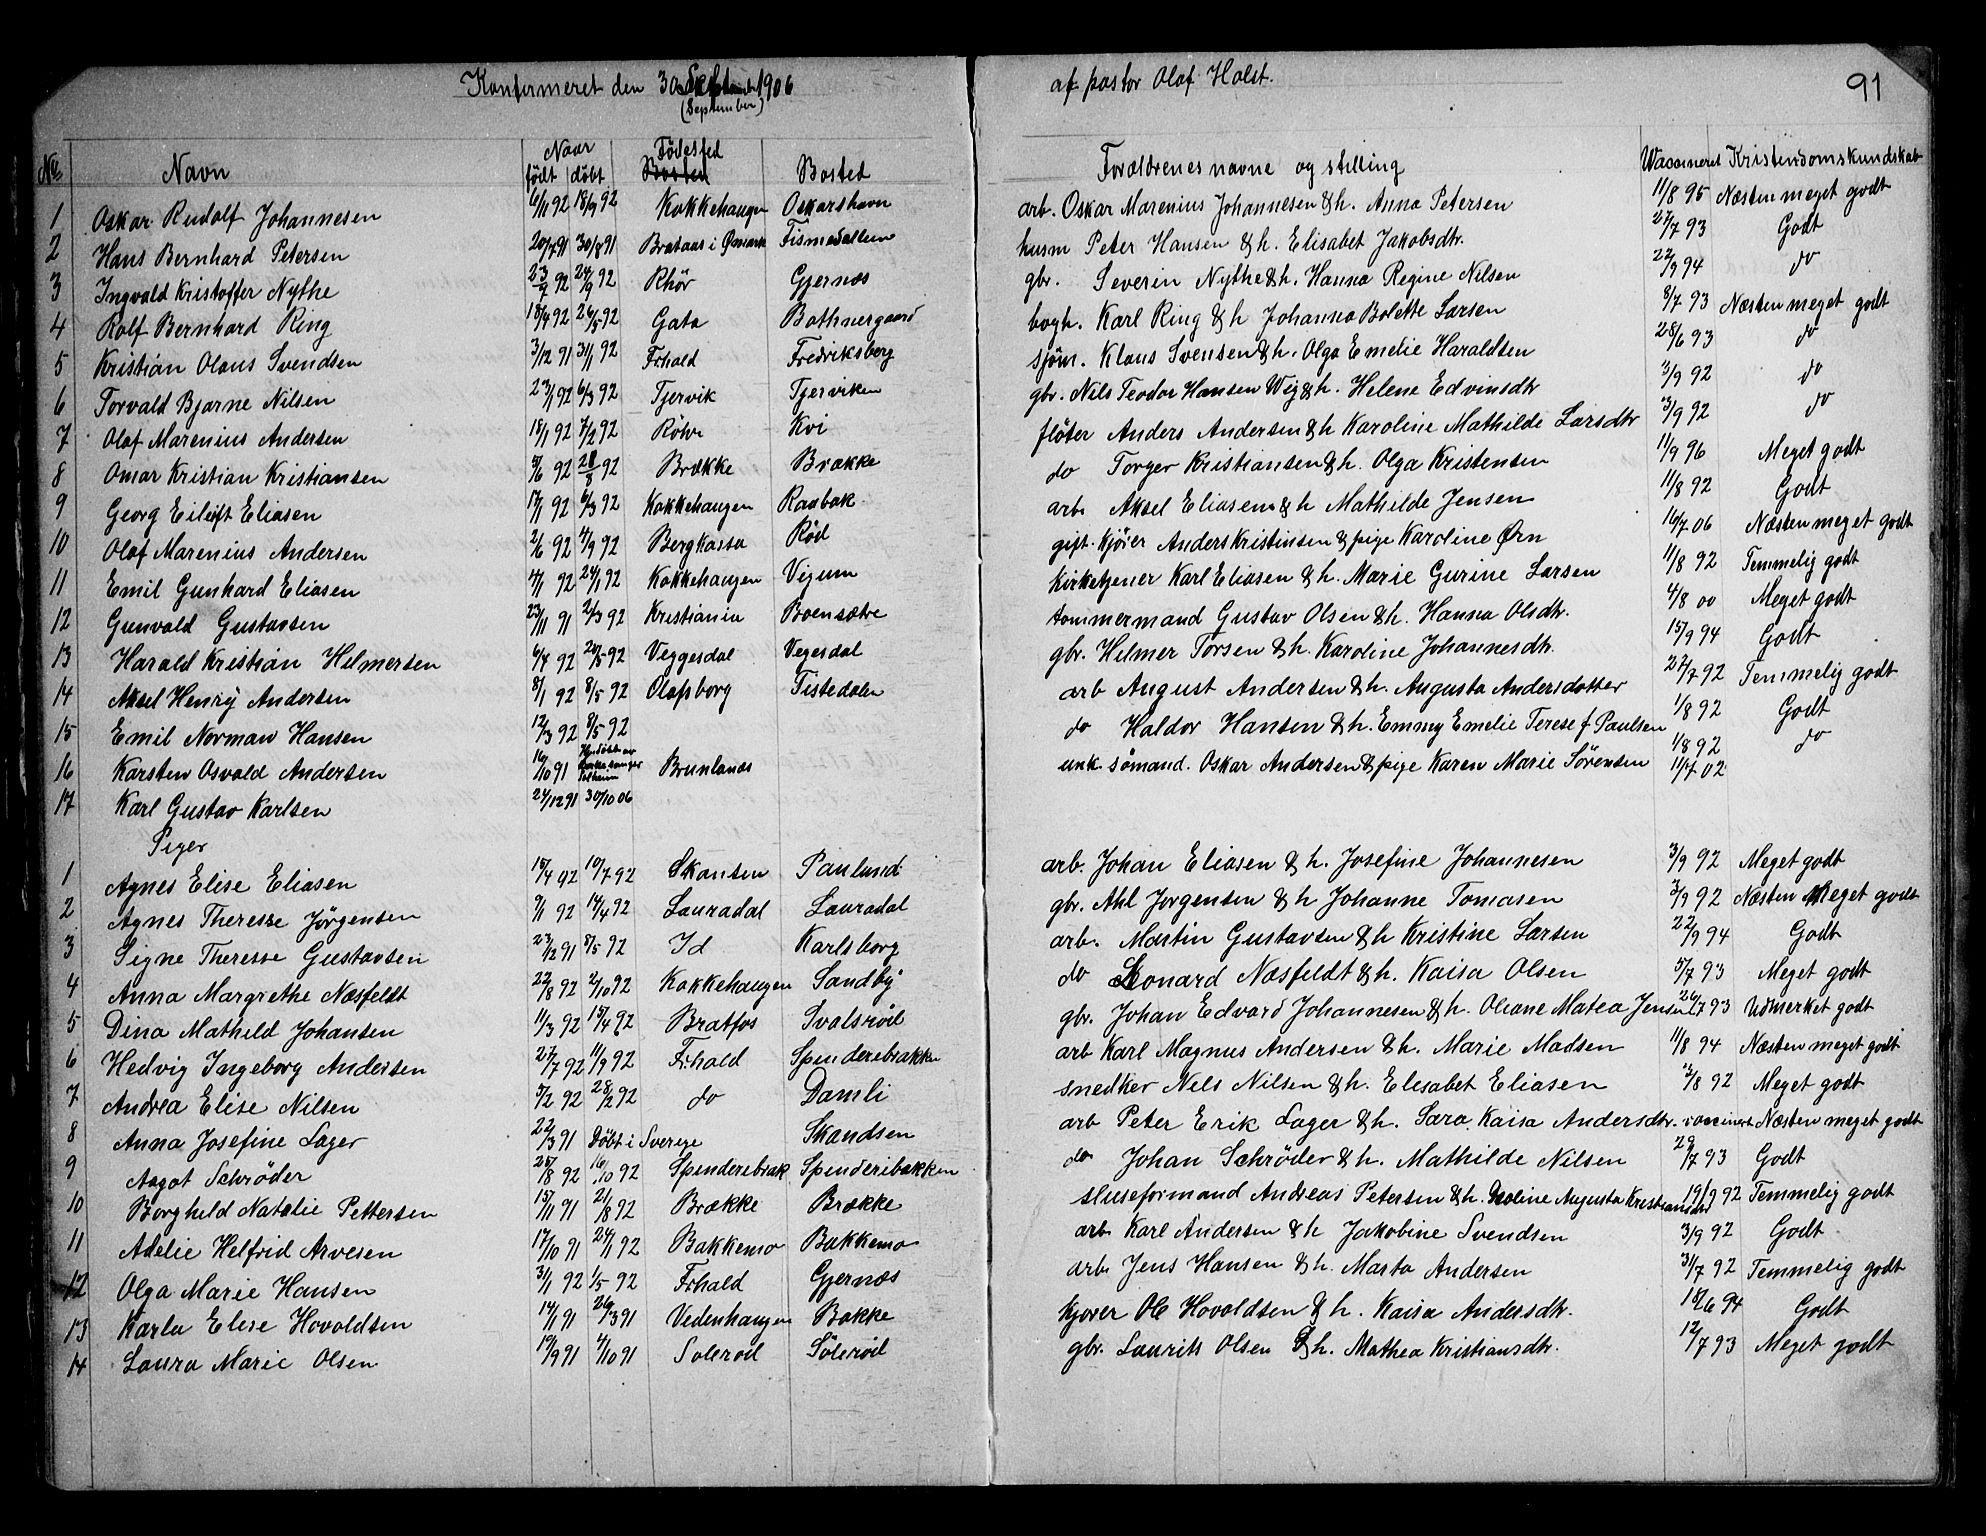 Konfirmeret den 30 1906 af pastor Olaf Holst. 91
(September)
No. Navn Naar født døbt Fødested Bosted Forældrenes navne og stilling Waccineret Kristendomskundskab
1 Oskar Rudolf Johannesen 6/11 92 18/9 92 Kokkehaugen Oskarshavn arb. Oskar Marenius Johannesen & h. Anna Petersen 11/8 95 Næsten meget godt
2 Hans Bernhard Petersen 20/7 91 30/8 91 Brataas i Ømark husm Peter Hansen & h. Elisabet Jakobsdtr. 27/7 93 Godt
3 Ingvald Kristoffer Nythe 23/7 92 24/9 92 Rhör Gjernæs gbr. Severin Nythe & h. Hanna Regine Nilsen 22/9 94 do
4 Rolf Bernhard Ring 18/4 92 26/5 92 Gata Bathnergaard bogh. Karl Ring & h Johanna Bolette Larsen 8/7 93 Næsten meget godt
5 Kristian Olaus Svendsen 3/12 91 31/1 92 Frhald Fredriksberg sjøm. Klaus Svensen & h. Olga Emelie Haraldsen 28/6 93 do
6 Torvald Bjarne Nilsen 23/1 92 6/3 92 Tjervik Tjerviken gbr. Nils Teodor Hansen Wig & h. Helene Edvinsdtr 3/9 92 do
7 Olaf Marenius Andersen 18/1 92 7/2 92 Rölvi Kvi fløter Anders Andersen & h Karoline Mathilde Larsdtr 3/9 92 do
8 Omar Kristian Kristiansen 5/6 92 28/8 92 Brække Brække do Torger Kristiansen & h. Olga Kristensen 11/9 96 Meget godt
9 Georg Eileift Eliasen 17/1 92 6/3 92 Kokkehaugen Raabak arb. Aksel Eliasen & h Mathilde Jensen 11/8 92 Godt
10 Olaf Marenius Andersen 2/6 92 4/9 92 Bergkassa Rød gift. kjører Anders Kristinsen & pige Karoline Ørn 16/7 06 Næsten meget godt
11 Emil Gunhard Eliasen 4/1 92 24/1 92 Kokkehaugen Vigum Kirketjener Karl Eliasen & h. Marie Gurine Larsen 11/8 92 Temmelig godt
12 Gunvald Gustavsen 23/11 91 2/3 92 Kristiania Boensætre tommermand Gustav Olsen & h. Hanna Olsdtr. 4/8 00 Meget godt
13 Harald Kristian Helmersen 6/4 92 20/5 92 Veggesdal Vegesdal gbr. Helmer Torsen & h. Karoline Johannesdtr. 15/9 94 Godt
14 Aksel Henry Andersen 8/1 92 8/5 92 Olafsborg Tistedalen arb August Andersen & h. Augusta Andersdotter 27/7 92 Temmelig godt
15 Emil Norman Hansen 12/3 92 8/5 92 do Haldor Hansen & h. Emmy Emelie Terese f. Paulsen 1/8 92 Godt
16 Karsten Osvald Andersen 16/10 91 Brunlanæs unk. sømand. Oskar Andersen & pige Karen Marie Sörensen 1/8 92 do
17 Karl Gustav Karlsen 24/12 91 30/10 06 11/7 02
Piger
1 Agnes Elise Eliasen 15/4 92 10/7 92 Skansen Paulund arb. Johan Eliasen & h. Josefine Johannesen 3/9 92 Meget godt
2 Agnes Therese Jørgensen 9/1 92 14/4 92 Lauradal Lauradal gbr. Ahl Jorgensen & h Johanne Tomasen 3/9 92 Næsten Meget godt
3 Signe Therese Gustavsen 23/12 91 8/5 92 Id Karlsborg arb. Martin Gustavsen & h Kristine Larsen 22/9 94 Godt
4 Anna Margrethe Næsfeldt 22/8 92 2/10 92 Kokkehaugen Sandby do Leonard Næsfeldt & h. Kaisa Olsen 5/7 93 Meget godt
5 Dina Mathild Johansen 11/3 92 15/4 92 Bratfos Svalsrød gbr. Johan Edvard Johannesen & h. Oliane Matea Jensen 26/7 93 Udmerket godt
6 Hedvig Ingeborg Andersen 27/7 92 11/9 92 Frhald Spenderebrakke arb Karl Magnus Andersen & h. Marie Madsen 11/8 94 Næsten meget godt
7 Andrea Elise Nilsen 5/2 92 28/2 92 do Damli snedker Nels Nilsen & h. Elesabet Eliasen 3/8 92 Meget godt
8 Anna Josefine Lager 22/3 91 Döbt i Sverige Skandsen arb Peter Erik Lager & h. Sara Kaisa Andersdtr. vaccinert Næsten meget godt
9 Aagot Schrøder 25/8 92 16/10 92 Spenderebrak Spenderibakken do Johan Schrøder & h. Mathilde Nilsen 29/7 93 Godt
10 Borghild Natalie Pettersen 15/11 91 21/8 92 Brække Brække sluseformand Andreas Petersen & h. Augusta Kristiansdtr 19/9 92 Temmelig godt
11 Adelie Helfrid Arvesen 17/10 91 24/1 92 Bakkemo Bakkemo arb Karl Andersen & h Jakobine Svendsen 3/9 92 Godt
12 Olga Marie Hansen 31/1 92 1/5 92 Frhald Gjernæs arb. Jens Hansen & h. Marta Andersen 31/7 92 Temmelig godt
13 Karla Elese Hovoldsen 14/1 91 26/3 91 Vedenhaugen Bakke kjører Ole Hovoldsen & h. Kaisa Andersdtr. 18/6 94 Godt
14 Laura Marie Olsen 19/9 91 4/10 91 Solerød Sölerød gbr. Laurits Olsen & h. Mathea Kristiansdtr. 12/7 93 Meget godt